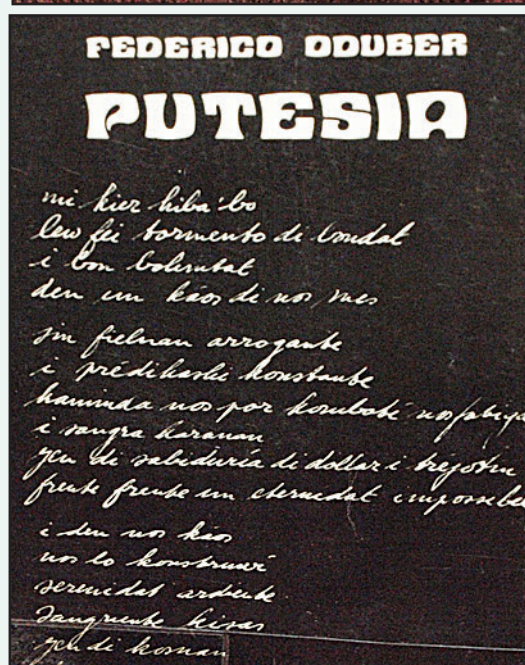 FEDERICO ODUBER
PUTESIA
mi kier hiba'bo
lew fei tormento di bondat
i bon boluntat
den un káos di nos mes
sin fielnan arrogante
i prédikashi konstante
kaminda nos por kombatí nos
i sangra karanan
yen di sabiduría di dollar i
frente frente un eternidat
i den nos káos
nos lo konstruurí
serenidat ardiente
sangriente kisas
yen di kosnan